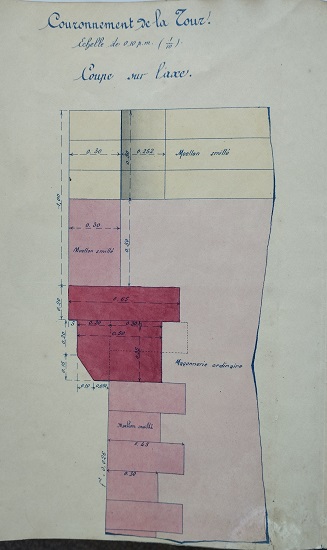 Couronnement de la Tour.
Echelle de 0.10 p.m. (1/10)
Coupe sur l'axe.
0.30
0.252
Moellon smillé
1.00
0.30
Moellon smillé
0.50
0.65
0.20
0.30
0.50
0.20
0.15
Maçonnerie ordinaire
0.10
Moellon smillé
0.45
0.30